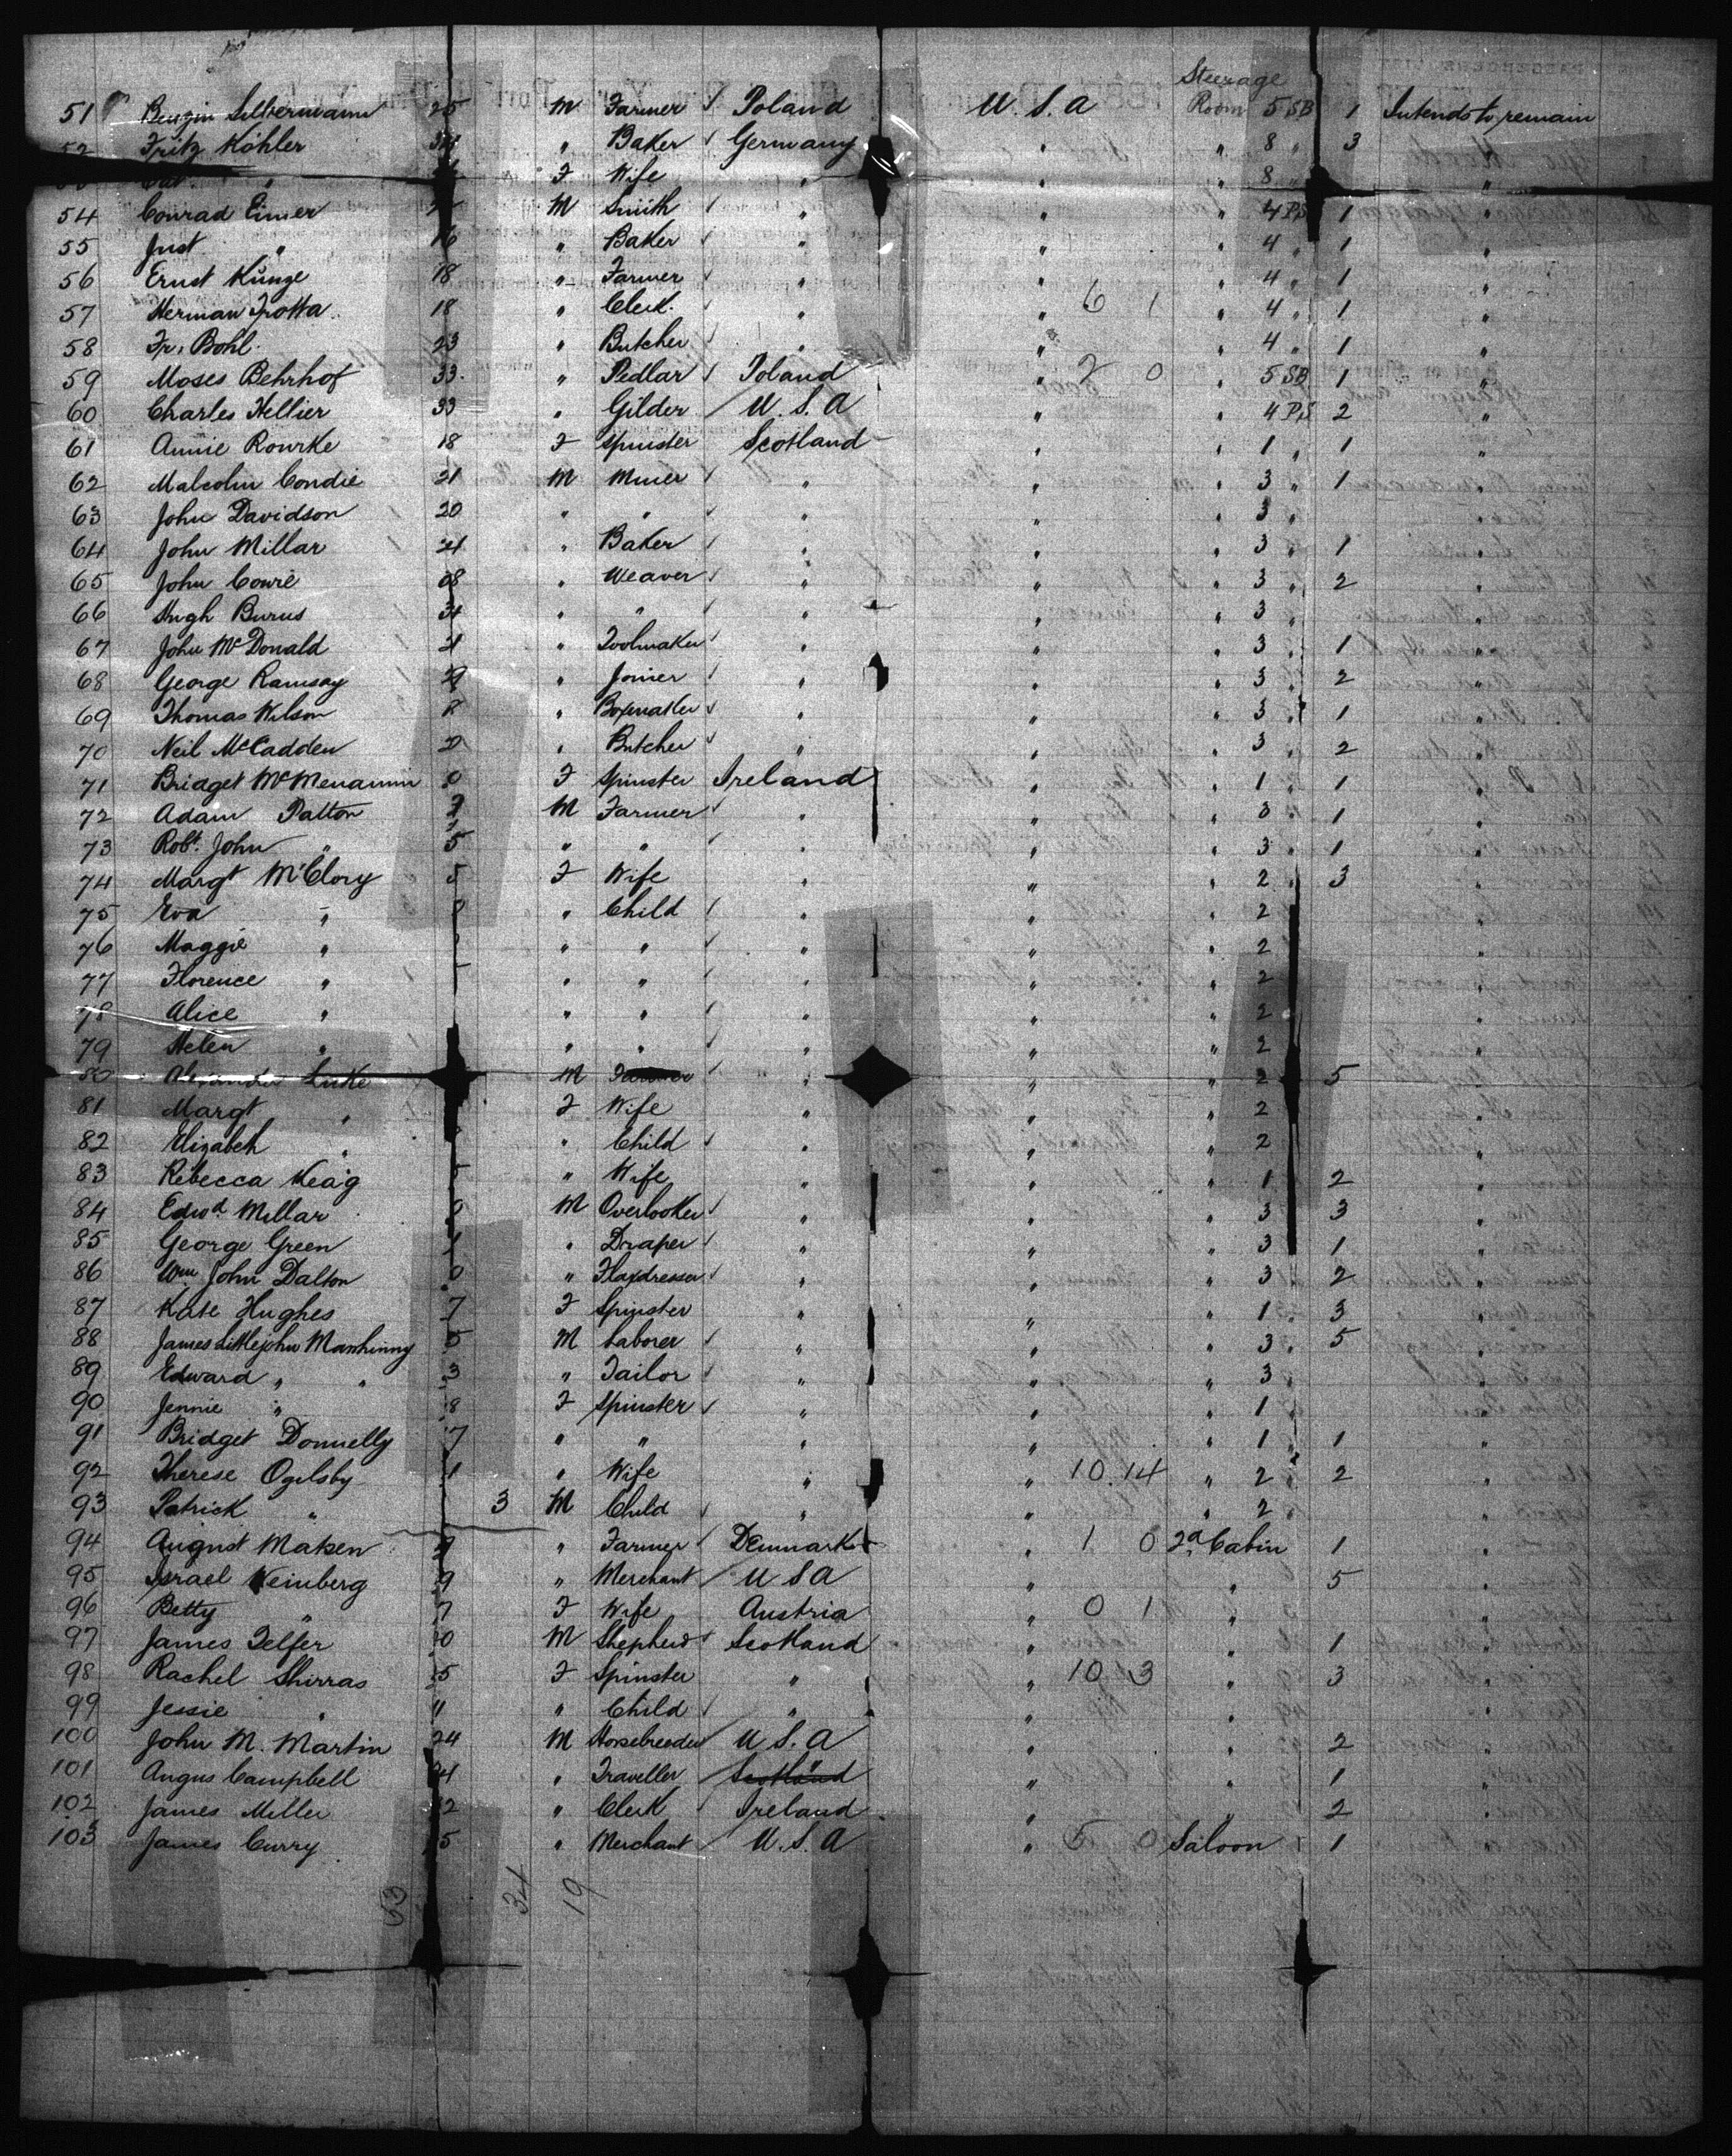 Steerage
51 Benzin Silbermann 25 M Farmer Poland U.S.A Room 5 SB 1 Intends to remain
52 Fritz Köhler " Baker Germany " " 8 " 3
" F Wife " " " 8 " "
54 Conrad Eimer M Smith " " " 4 PS 1 "
55 Just " 16 " Baker " " " 4 " 1 "
56 Ernst Kunze 18 " Farmer " " " 4 " 1 "
57 Herman Trotta 18 " Clerk " " 6 1 " 4 " 1 "
58 Fr. Bohl 23 " Butcher " " " 4 " 1 "
59 Moses Behrhof 33 " Pedlar Poland " 2 0 " 5 SB 1 "
60 Charles Hellier 33 " Gilder U.S.A " " 4 PS 2 "
61 Annie Rourke 18 F Spinster Scotland " " 1 " 1 "
62 Malcolm Condie 21 M Miner " " " 3 " 1 "
63 John Davidson 20 " " " " " 3 " "
64 John Millar 21 " Baker " " " 3 " 1 "
65 John Cowie " Weaver " " " 3 " 2 "
66 Hugh Burns 34 " " " " " 3 " "
67 John McDonald " Toolmaker " " " 3 " 1 "
68 George Ramsay " Joiner " " " 3 " 2 "
69 Thomas Wilson " Boxmaker " " " 3 " 1 "
70 Neil McCadden " Butcher " " " 3 " 2 "
71 Bridget McMenamin 0 F Spinster Ireland " " 1 " 1 "
72 Adam Patton M Farmer " " " 3 " 1 "
73 Robt. John " 5 " " " " " 3 " 1 "
74 Margt McClory 5 F Wife " " " 2 " 3 "
75 Eva " 8 " Child " " " 2 "
76 Maggie " " " " " " 2 "
77 Florence " " " " " " 2 "
78 Alice " " " " " " 2 "
79 Helen " " " " " " 2 "
80 Alexander Luke M Farmer " " " 2 5 "
81 Margt " F Wife " " " 2 "
82 Elizabeh " " Child " " " 2 "
83 Rebecca Keag " Wife " " " 1 2 "
84 Edwd. Millar 0 M Overlooker " " " 3 3 "
85 George Green " Draper " " " 3 1 "
86 Wm John Dalton 0 " Flaxdresser " " " 3 " 2 "
87 Kate Hughes 7 F Spinster " " " 1 " 3 "
88 James Littlejohn Manhinny 5 M Laborer " " " 3 " 5 "
89 Edward " " 3 " Tailor " " " 3 " "
90 Jennie " 8 F Spinster " " " 1 " "
91 Bridget Donnelly 7 " " " " " 1 " 1 "
92 Therese Ogilsby 1 " Wife " " 10 14 " 2 " 2 "
93 Patrick " 3 M Child " " " 2 "
94 August Maksen " Farmer Denmark " 1 0 2d Cabin 1 "
95 Israel Weinberg 9 " Merchant U S A " " 5 "
96 Betty " 7 F Wife Austria " 0 1 " "
97 James Telfer 0 M Shepherd Scotland " " 1 "
98 Rachel Shirras 5 F Spinster " " 10 13 " 3 "
99 Jessie " 11 " Child " " " "
100 John M. Martin 24 M Horsebreeder U.S.A " " 2 "
101 Angus Campbell " Traveller Scotland " " 1 "
102 James Miller 2 " Clerk Ireland " " 2 "
103 James Curry 5 " Merchant U.S.A " 5 0 Saloon 1 "
53 34 19